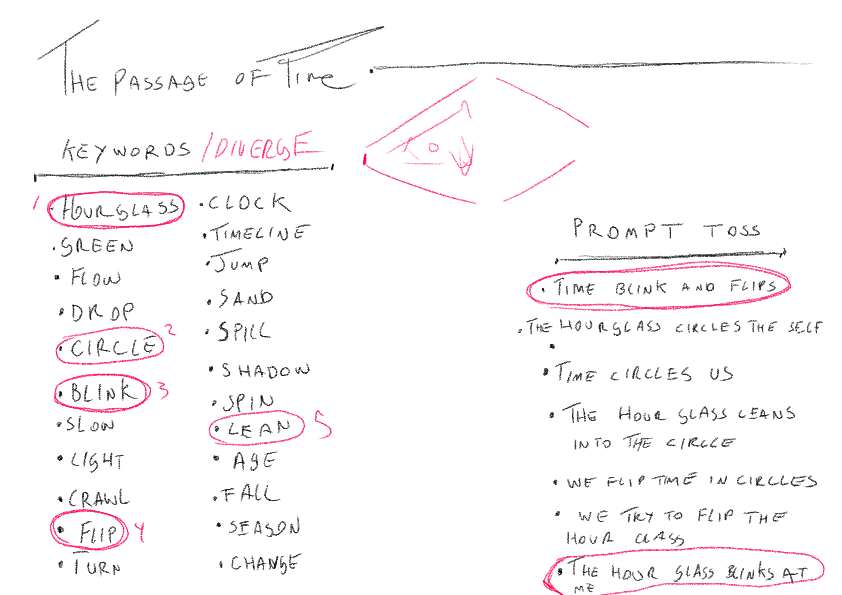 THE PASSAGE OF TIME
KEYWORDS /DIVERGE
1 · HOURGLASS
· GREEN
· FLOW
· DROP
· CIRCLE 2
· BLINK 3
· SLOW
· LIGHT
· CRAWL
· FLIP 4
· TURN
· CLOCK
· TIMELINE
· JUMP
· SAND
· SPILL
· SHADOW
· SPIN
· LEAN 5
· AGE
· FALL
· SEASON
· CHANGE
PROMPT TOSS
· TIME BLINK AND FLIPS
· THE HOURGLASS CIRCLES THE SELF
·
· TIME CIRCLES US
· THE HOUR GLASS LEANS
INTO THE CIRCLE
· WE FLIP TIME IN CIRCLES
· WE TRY TO FLIP THE
HOUR GLASS
· THE HOUR GLASS BLINKS AT
ME